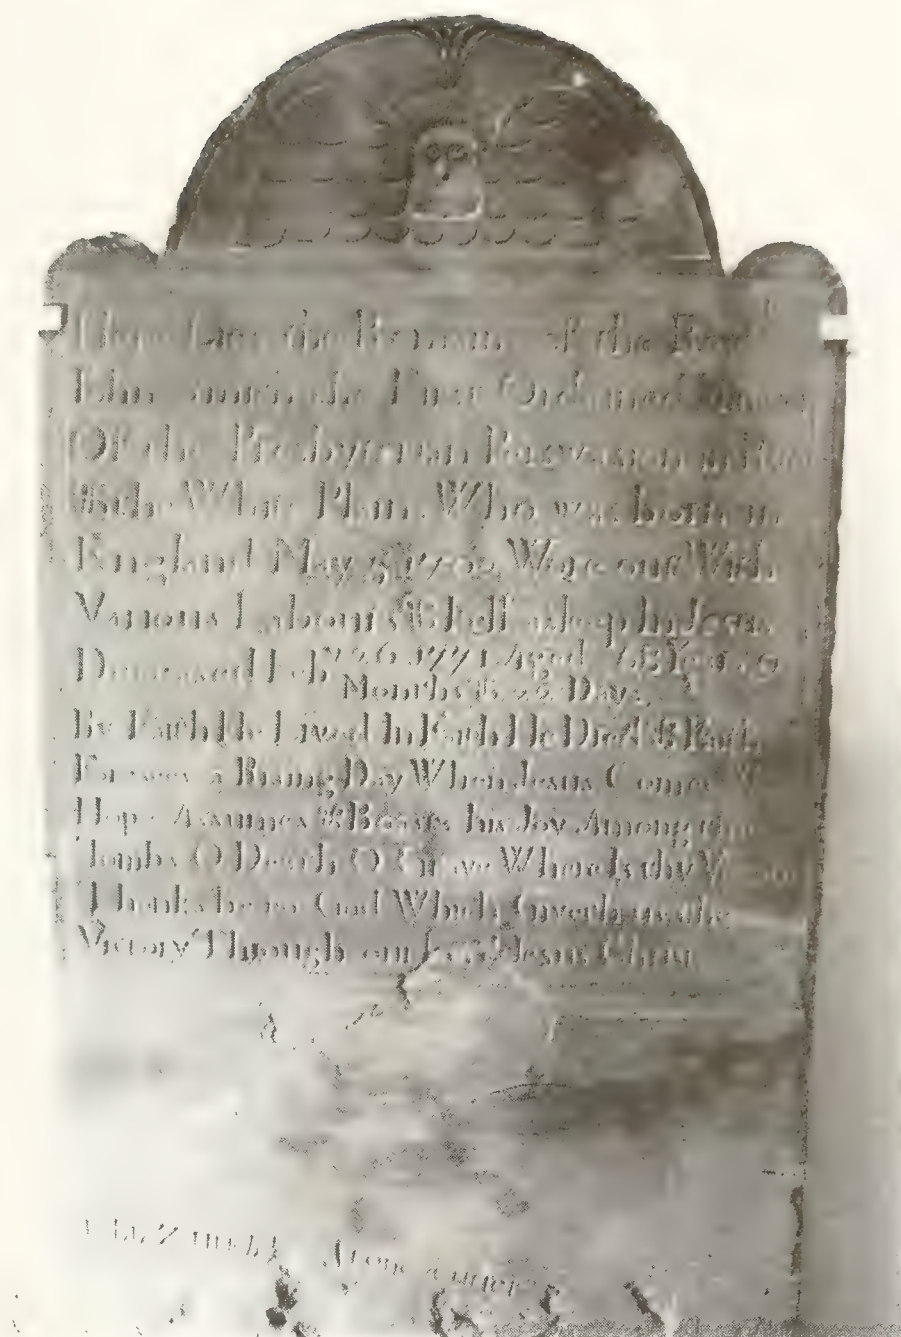 Here Lies the Remains of the Revd
John Smith the First Ordained
Of the Presbyterian Perswasion
& the White Plains Who was born in
England May Wore out With
Various Labours & fell asleep In Jesus
Deceased Feb 26 1771 Aged
Months & Days
By Faith He Lived In Faith He Died & Faith
Foresees a Rising Day When Jesus Comes
Hope Assumes & Bears his Joy Among the
Tombs O Death O Grave Where Is thy
Thanks be to God Which Giveth us the
Victory Through our Lord Jesus Christ
Stone Cutter